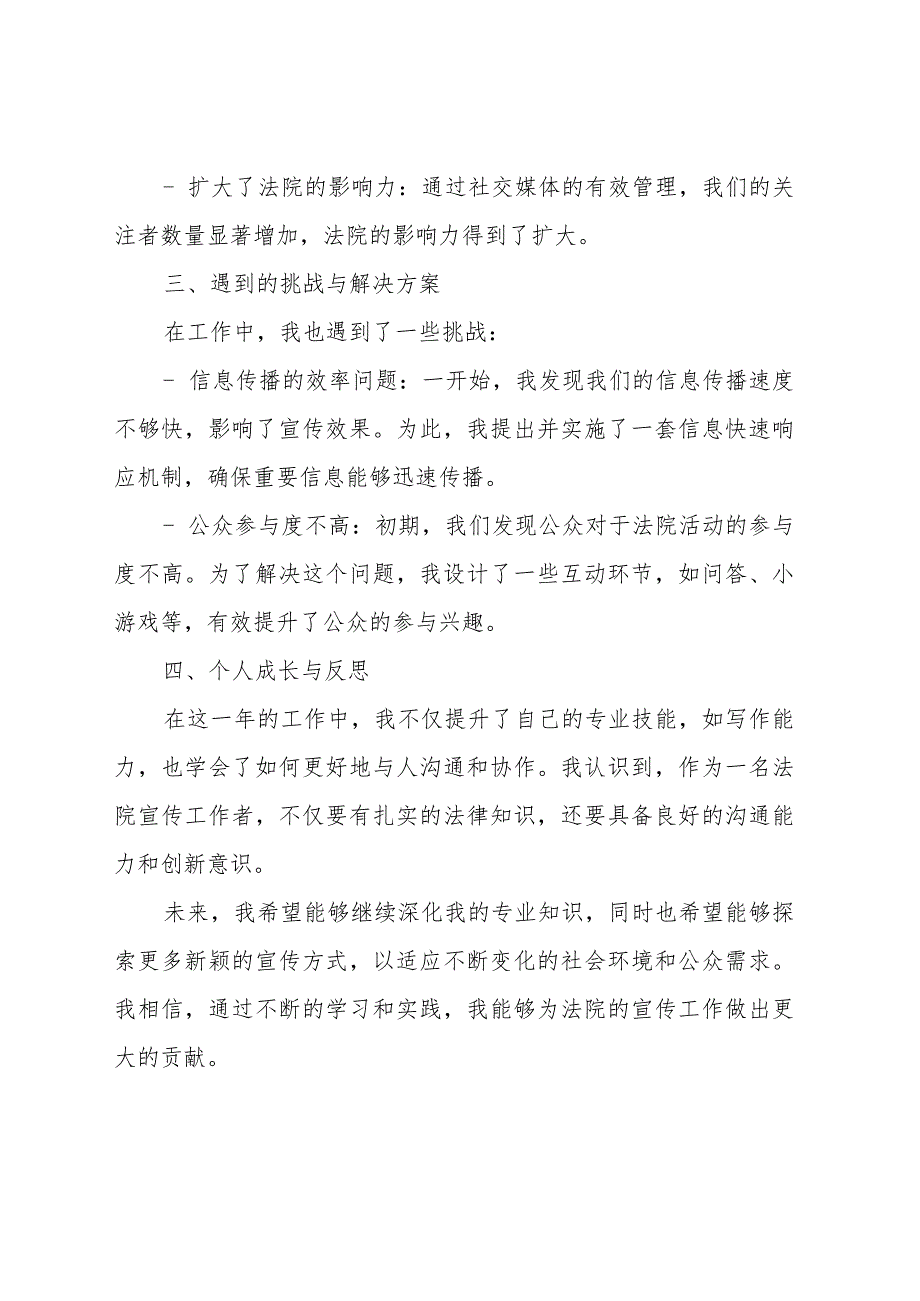 - 扩大了法院的影响力：通过社交媒体的有效管理，我们的关
注者数量显著增加，法院的影响力得到了扩大。
三、遇到的挑战与解决方案
在工作中，我也遇到了一些挑战：
- 信息传播的效率问题：一开始，我发现我们的信息传播速度
不够快，影响了宣传效果。为此，我提出并实施了一套信息快速响
应机制，确保重要信息能够迅速传播。
- 公众参与度不高：初期，我们发现公众对于法院活动的参与
度不高。为了解决这个问题，我设计了一些互动环节，如问答、小
游戏等，有效提升了公众的参与兴趣。
四、个人成长与反思
在这一年的工作中，我不仅提升了自己的专业技能，如写作能
力，也学会了如何更好地与人沟通和协作。我认识到，作为一名法
院宣传工作者，不仅要有扎实的法律知识，还要具备良好的沟通能
力和创新意识。
未来，我希望能够继续深化我的专业知识，同时也希望能够探
索更多新颖的宣传方式，以适应不断变化的社会环境和公众需求。
我相信，通过不断的学习和实践，我能够为法院的宣传工作做出更
大的贡献。